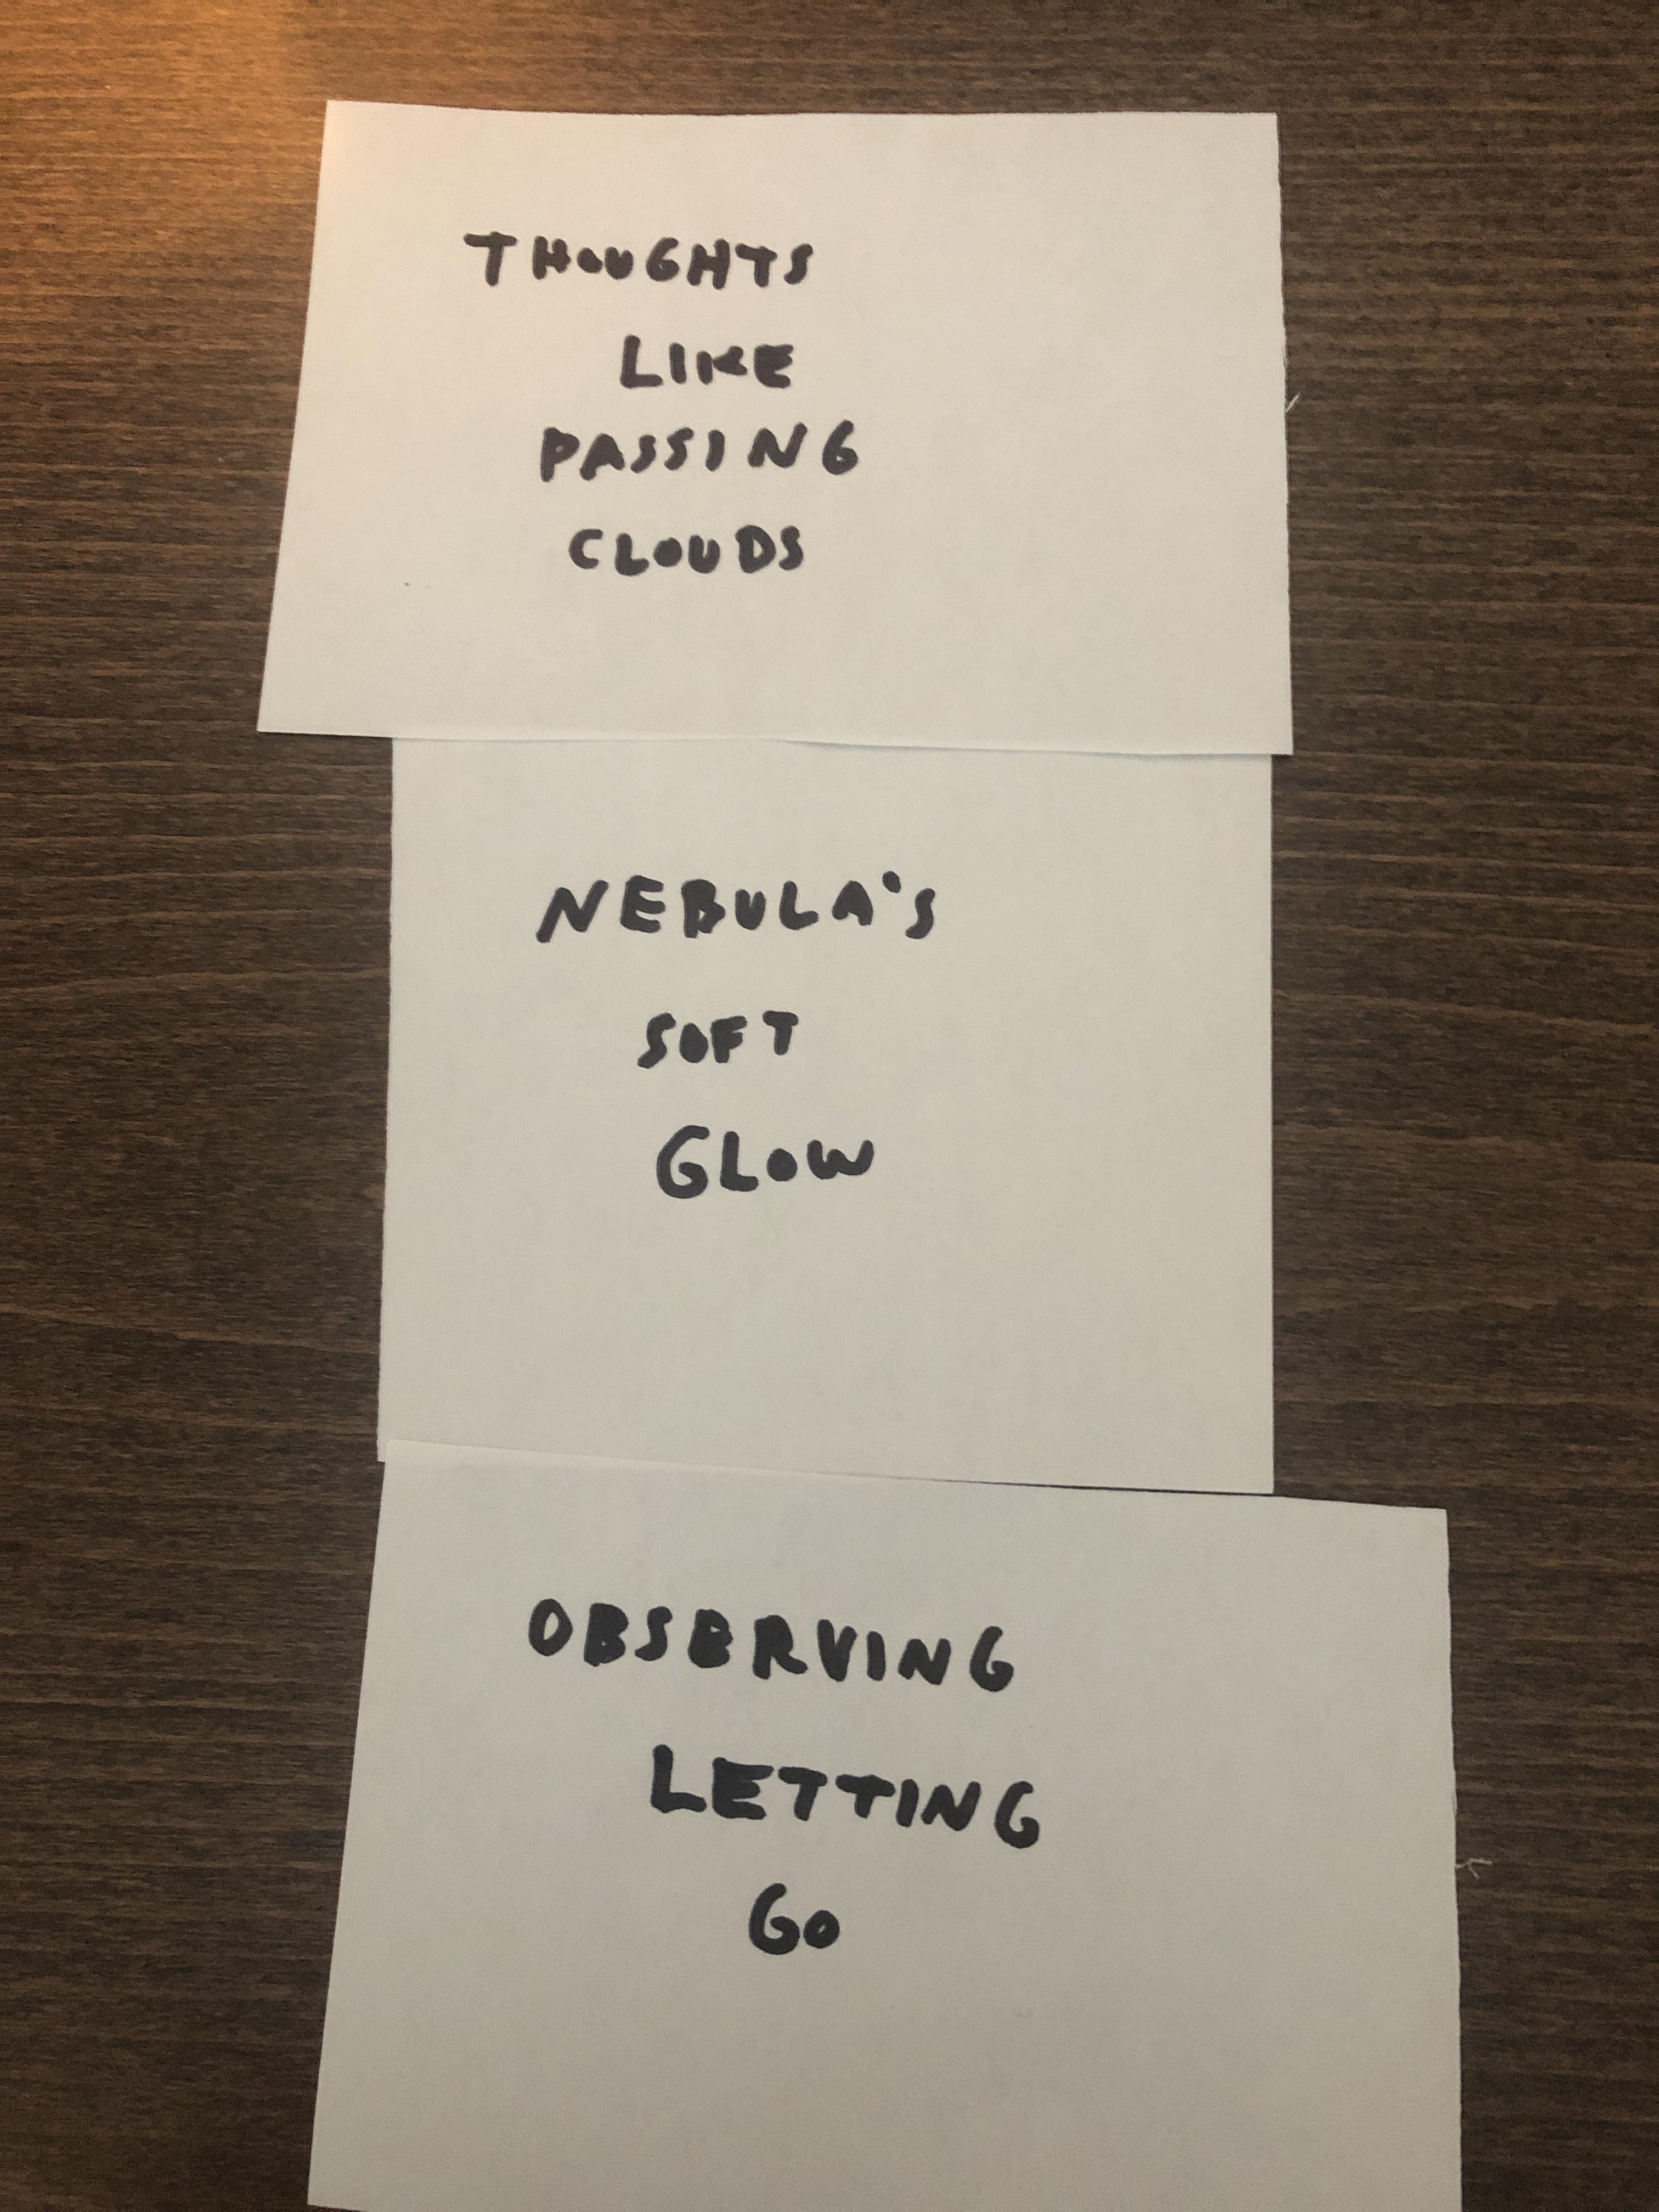 THOUGHTS
LIKE
PASSING
CLOUDS
NEBULA'S
SOFT
GLOW
OBSERVING
LETTING
GO